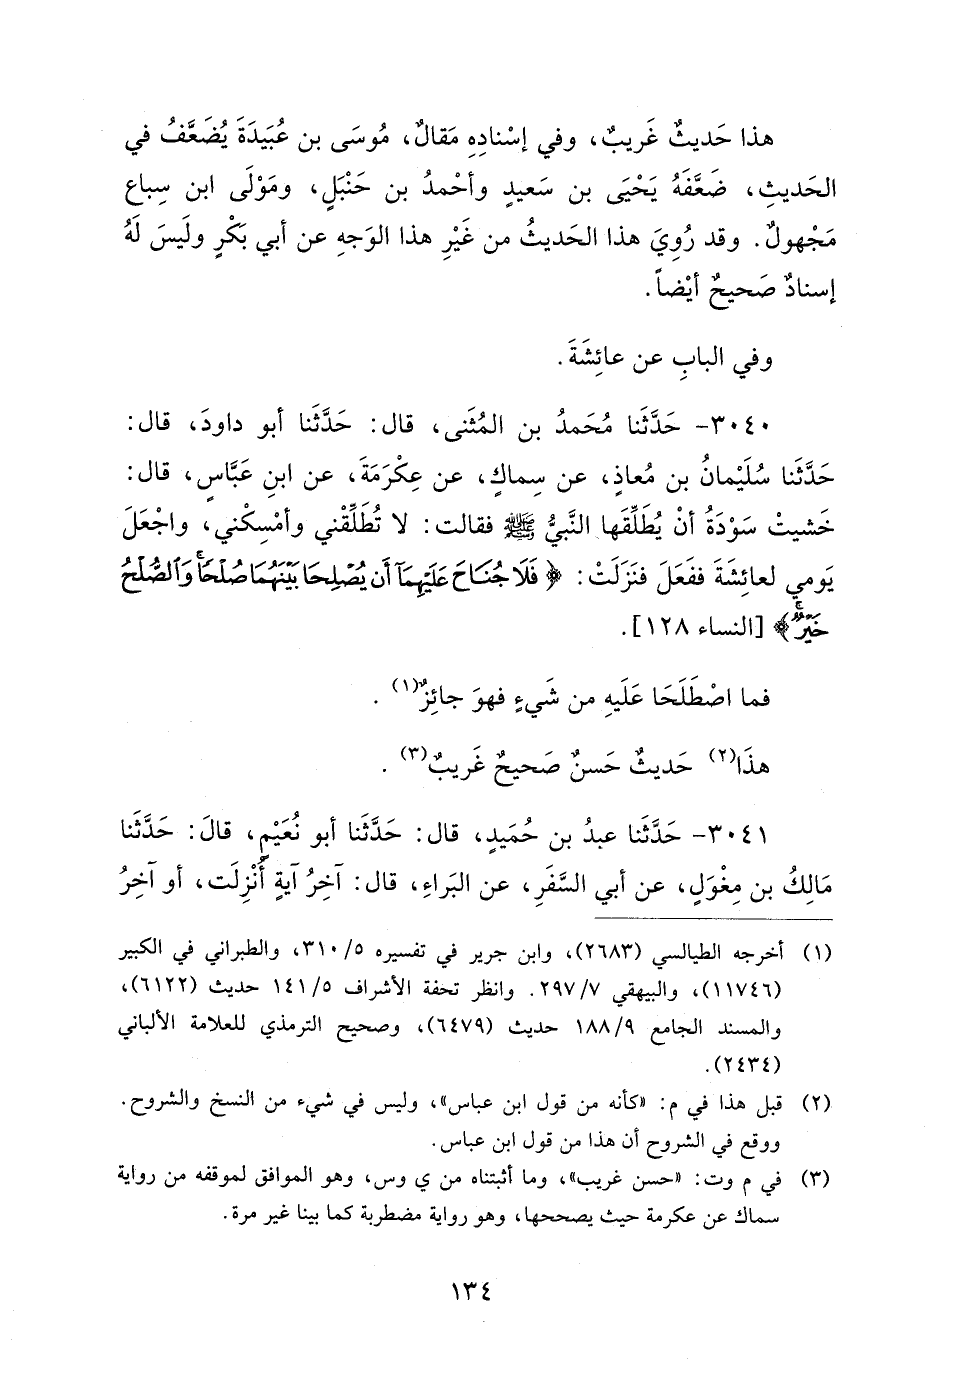 هذا حَديثٌ غَريبٌ، وفي إسْنادِهِ مَقالٌ، مُوسَى بن عُبَيدَةَ يُضَعَّفُ في
الحَديثِ، ضَعَّفَهُ يَحْيَى بن سَعيدٍ وأحْمدُ بن حَنْبَلٍ، ومَوْلَى ابن سِباعٍ
مَجْهولٌ. وقد رُوِيَ هذا الحَديثُ من غَيْرِ هذا الوَجهِ عن أبي بَكْرٍ ولَيسَ لَهُ
إسنادٌ صَحيحٌ أيْضاً.
وفي البابِ عن عائِشَةَ.
٣٠٤٠- حَدَّثَنا مُحَمدُ بن المُثَنى، قال: حَدَّثَنا أبو داودَ، قال:
حَدَّثَنا سُلَيْمانُ بن مُعاذٍ، عن سِماكٍ، عن عِكْرَمَةَ، عن ابنِ عَبَّاسٍ، قال:
خَشيتْ سَوْدَةُ أنْ يُطَلِّقَها النَّبيُّ ﷺ فقالت: لا تُطَلِّقْني وأمْسِكْني، واجْعَلْ
يَومي لعائِشَةَ ففَعَلَ فنَزَلَتْ: ﴿فَلَا جُنَاحَ عَلَيْهِمَآ أَن يُصْلِحَا بَيْنَهُمَا صُلْحًا ۚ وَالصُّلْحُ
خَيْرٌ ۗ﴾ [النساء ١٢٨].
فما اصْطَلَحَا عَلَيهِ من شَيءٍ فهوَ جائِزٌ(١).
هذَا(٢) حَديثٌ حَسنٌ صَحيحٌ غَريبٌ(٣).
٣٠٤١- حَدَّثَنا عبدُ بن حُمَيدٍ، قال: حَدَّثَنا أبو نُعَيْمٍ، قالَ: حَدَّثَنا
مَالِكُ بن مِغْوَلٍ، عن أبي السَّفَرِ، عن البَراءِ، قال: آخِرُ آيةٍ أُنْزِلَت، أو آخِرُ
(١) أخرجه الطيالسي (٢٦٨٣)، وابن جرير في تفسيره ٥/ ٣١٠، والطبراني في الكبير
(١١٧٤٦)، والبيهقي ٧/ ٢٩٧. وانظر تحفة الأشراف ٥/ ١٤١ حديث (٦١٢٢)،
والمسند الجامع ٩/ ١٨٨ حديث (٦٤٧٩)، وصحيح الترمذي للعلامة الألباني
(٢٤٣٤).
(٢) قبل هذا في م: «كأنه من قول ابن عباس»، وليس في شيء من النسخ والشروح.
ووقع في الشروح أن هذا من قول ابن عباس.
(٣) في م وت: «حسن غريب»، وما أثبتناه من ي وس، وهو الموافق لموقفه من رواية
سماك عن عكرمة حيث يصححها، وهو رواية مضطربة كما بينا غير مرة.
١٣٤